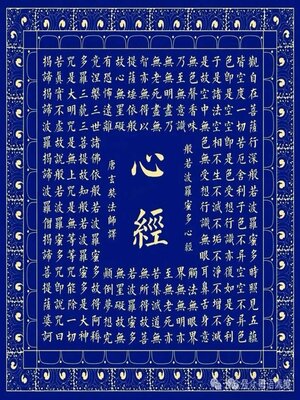 觀自在菩薩行深般若波羅蜜多時照見五蘊
皆空度一切苦厄舍利子色不異空空不異色
色即是空空即是色受想行識亦復如是舍利
子是諸法空相不生不滅不垢不淨不增不減
是故空中無色無受想行識無眼耳鼻舌身意
般若波羅蜜多心經
心經
唐玄奘法師譯
無色聲香味觸法無眼界
乃至無意識界無無明亦
無無明盡乃至無老死亦
無老死盡無苦集滅道無
智亦無得以無所得故菩
提薩埵依般若波羅蜜多
故心無罣礙無罣礙故無
有恐怖遠離顛倒夢想究
竟涅槃三世諸佛依般若波羅蜜多故得阿耨
多羅三藐三菩提故知般若波羅蜜多是大神
咒是大明咒是無上咒是無等等咒能除一切
苦真實不虛故說般若波羅蜜多咒即說咒曰
揭諦揭諦波羅揭諦波羅僧揭諦菩提薩婆訶